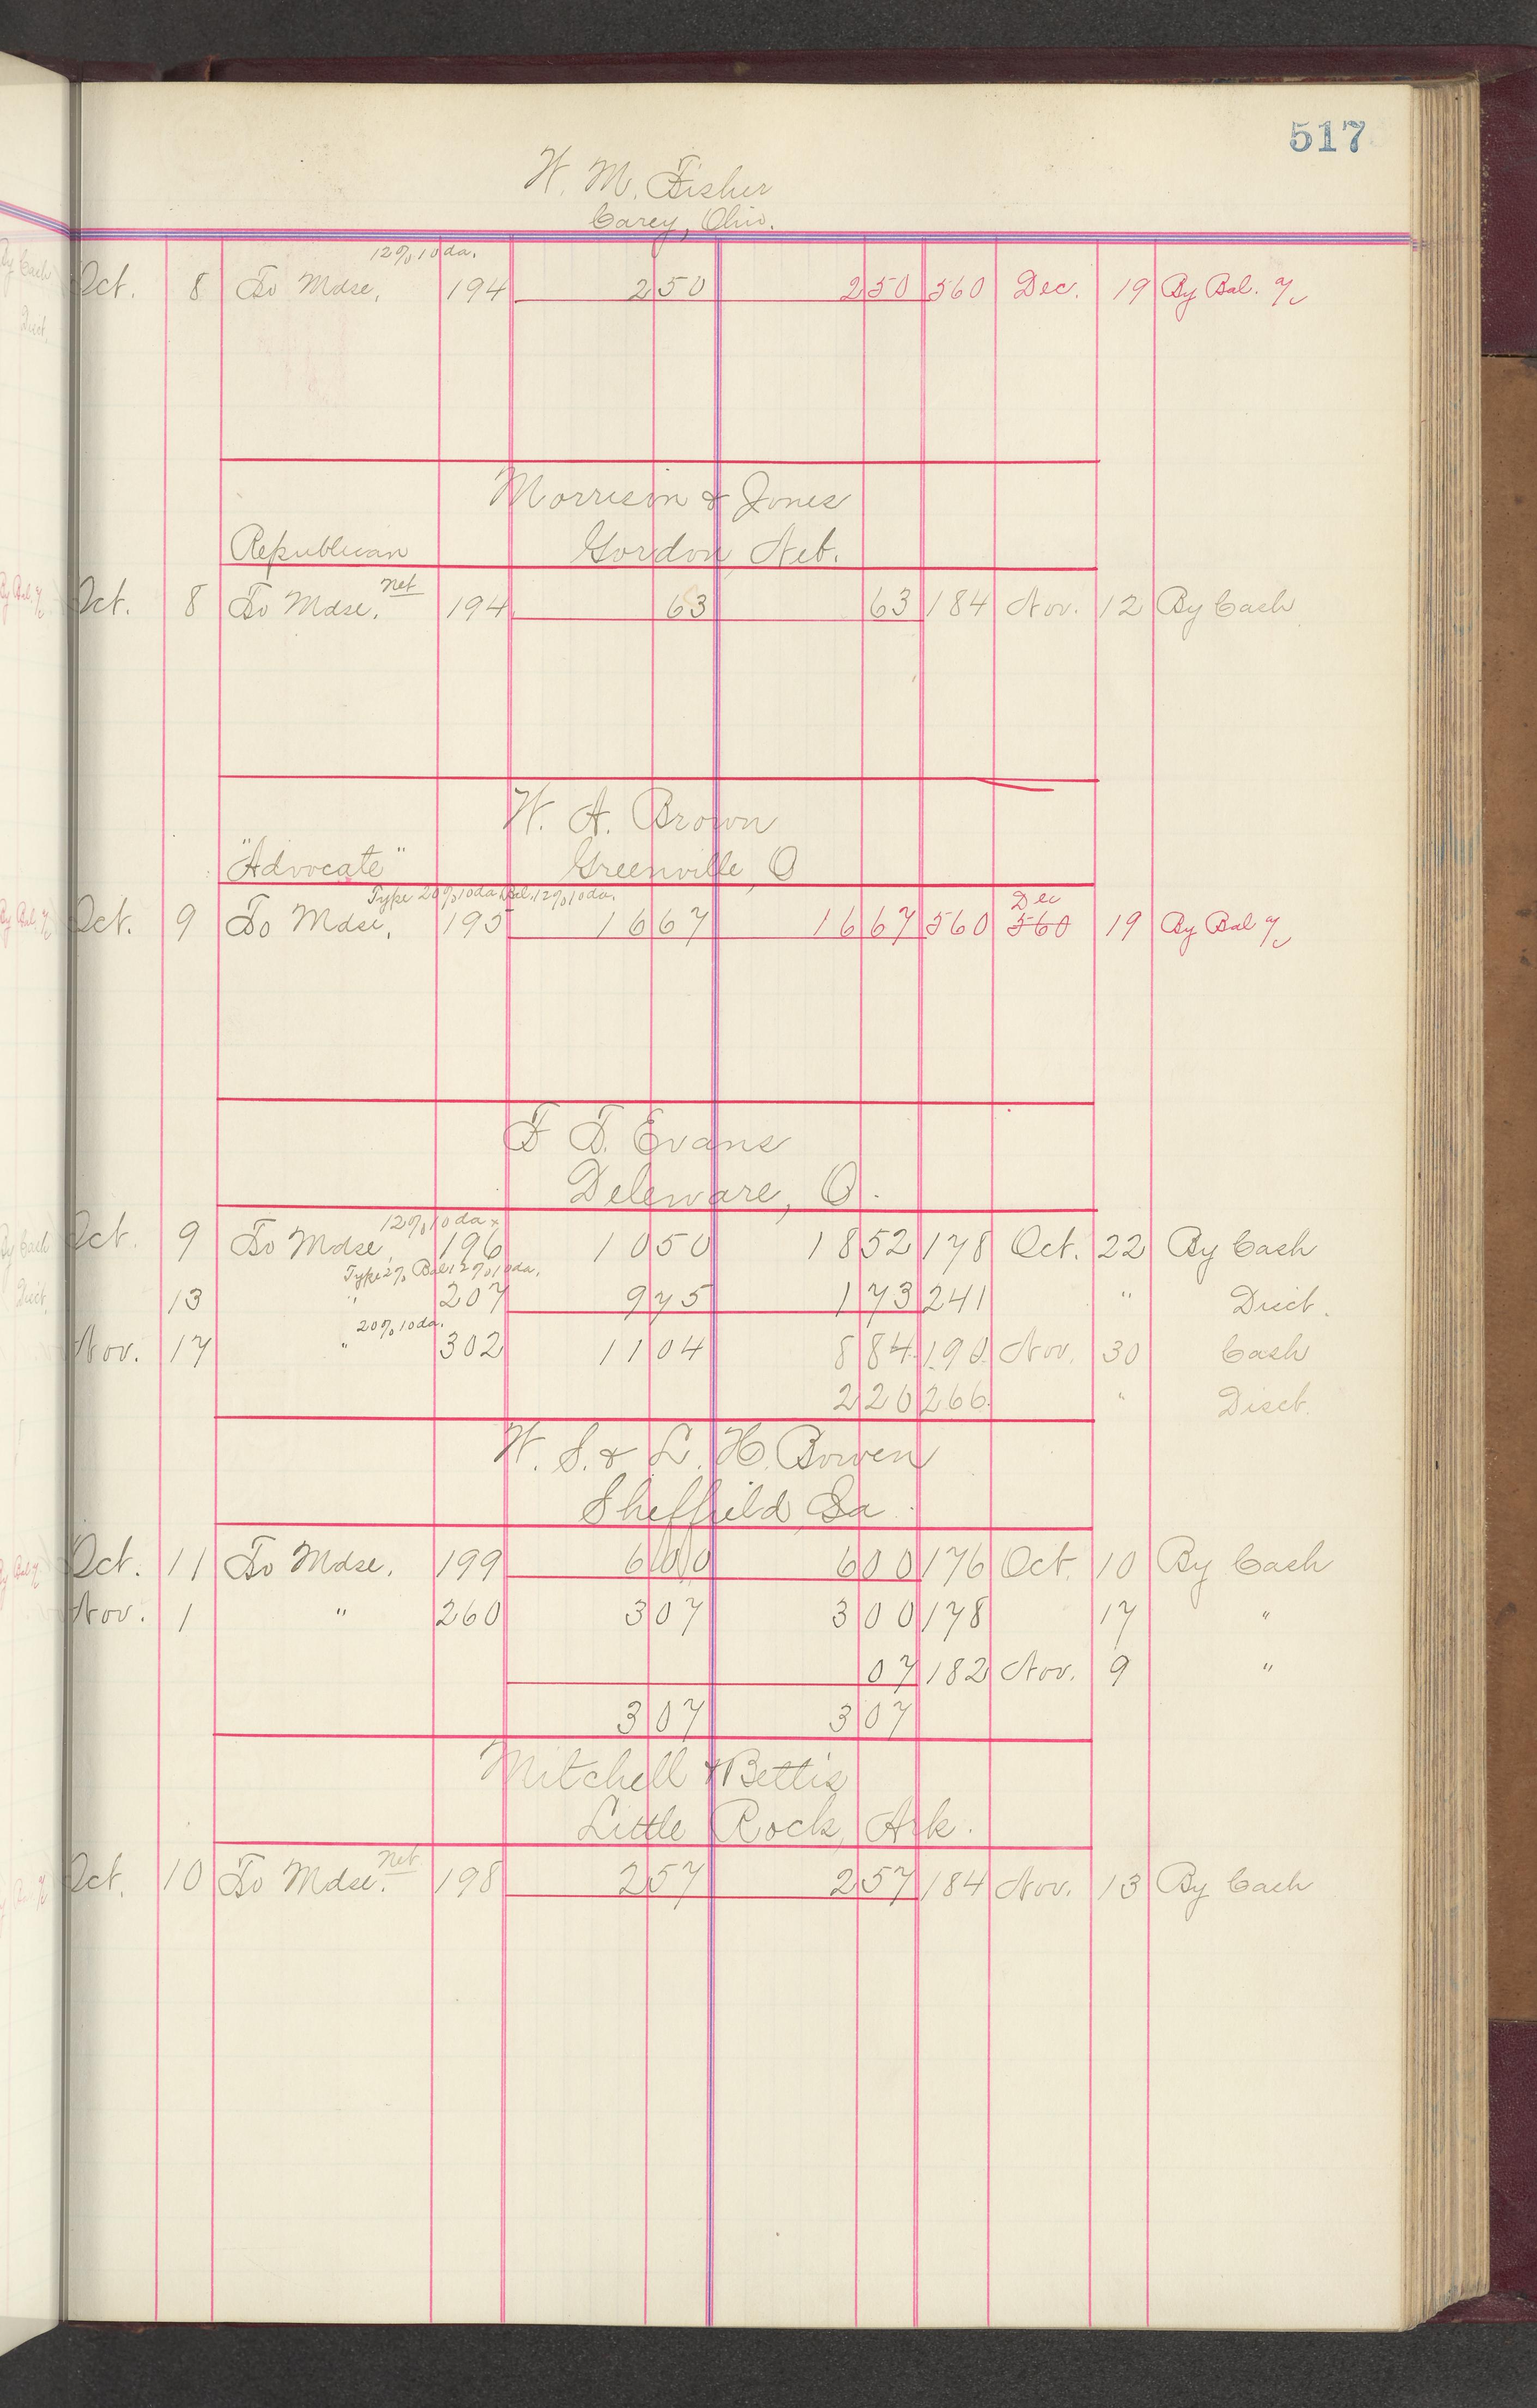 517
W. M. Fisher
Carey, Ohio.
12% 10 da.
Oct. 8 To Mdse, 194 2 50 2 50 560 Dec. 19 By Bal. %
Morrison & Jones
Republican Gordon, Neb.
net
Oct. 8 To Mdse. 194 63 63 184 Nov. 12 By Cash
W. A. Brown
"Advocate" Greenville, O
Type 20% 10 da Bal. 12% 10 da. Dec
Oct. 9 To Mdse, 195 16 67 16 67 560 560 19 By Bal %
F. T. Evans
Deleware, O.
12% 10 da x
Oct. 9 To Mdse, 196 10 50 18 52 178 Oct. 22 By Cash
Type 2% Bal 12% 10 da.
13 " 207 9 75 1 73 241 " Disct.
20% 10 da.
Nov. 17 " 302 11 04 8 84 190 Nov. 30 Cash
2 20 266 " Disct.
W. S. & L. H. Bowen
Sheffield, Ga.
Oct. 11 To Mdse. 199 6 00 6 00 176 Oct. 10 By Cash
Nov. 1 " 260 3 07 3 00 178 17 "
07 182 Nov. 9 "
3 07 3 07
Mitchell & Bettis
Little Rock, Ark.
net
Oct. 10 To Mdse. 198 2 57 2 57 184 Nov. 13 By Cash